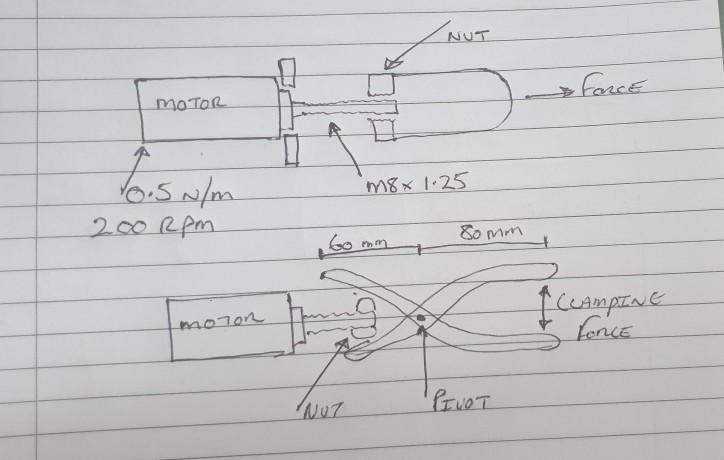 NUT
MOTOR
Force
M8 x 1.25
0.5 N/m
200 Rpm
60 mm
80 mm
MOTOR
CLAMPINE
Force
NUT
PIVOT